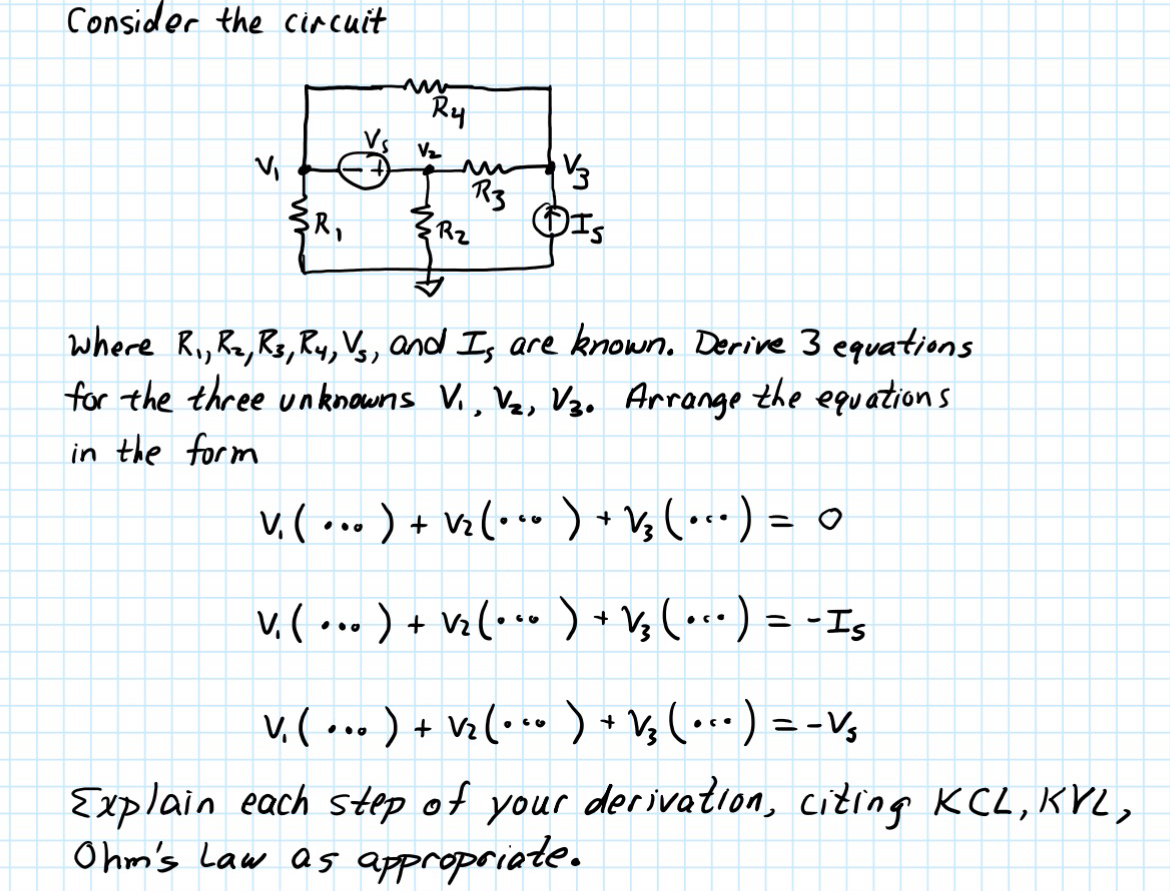 Consider the circuit
R4
Vs
V2
V1
− +
V3
R3
R1
R2
Is
where R1, R2, R3, R4, Vs, and Is are known. Derive 3 equations
for the three unknowns V1, V2, V3. Arrange the equations
in the form
V1( ... ) + V2( ... ) + V3( ... ) = 0
V1( ... ) + V2( ... ) + V3( ... ) = -Is
V1( ... ) + V2( ... ) + V3( ... ) = -Vs
Explain each step of your derivation, citing KCL, KVL,
Ohm's Law as appropriate.